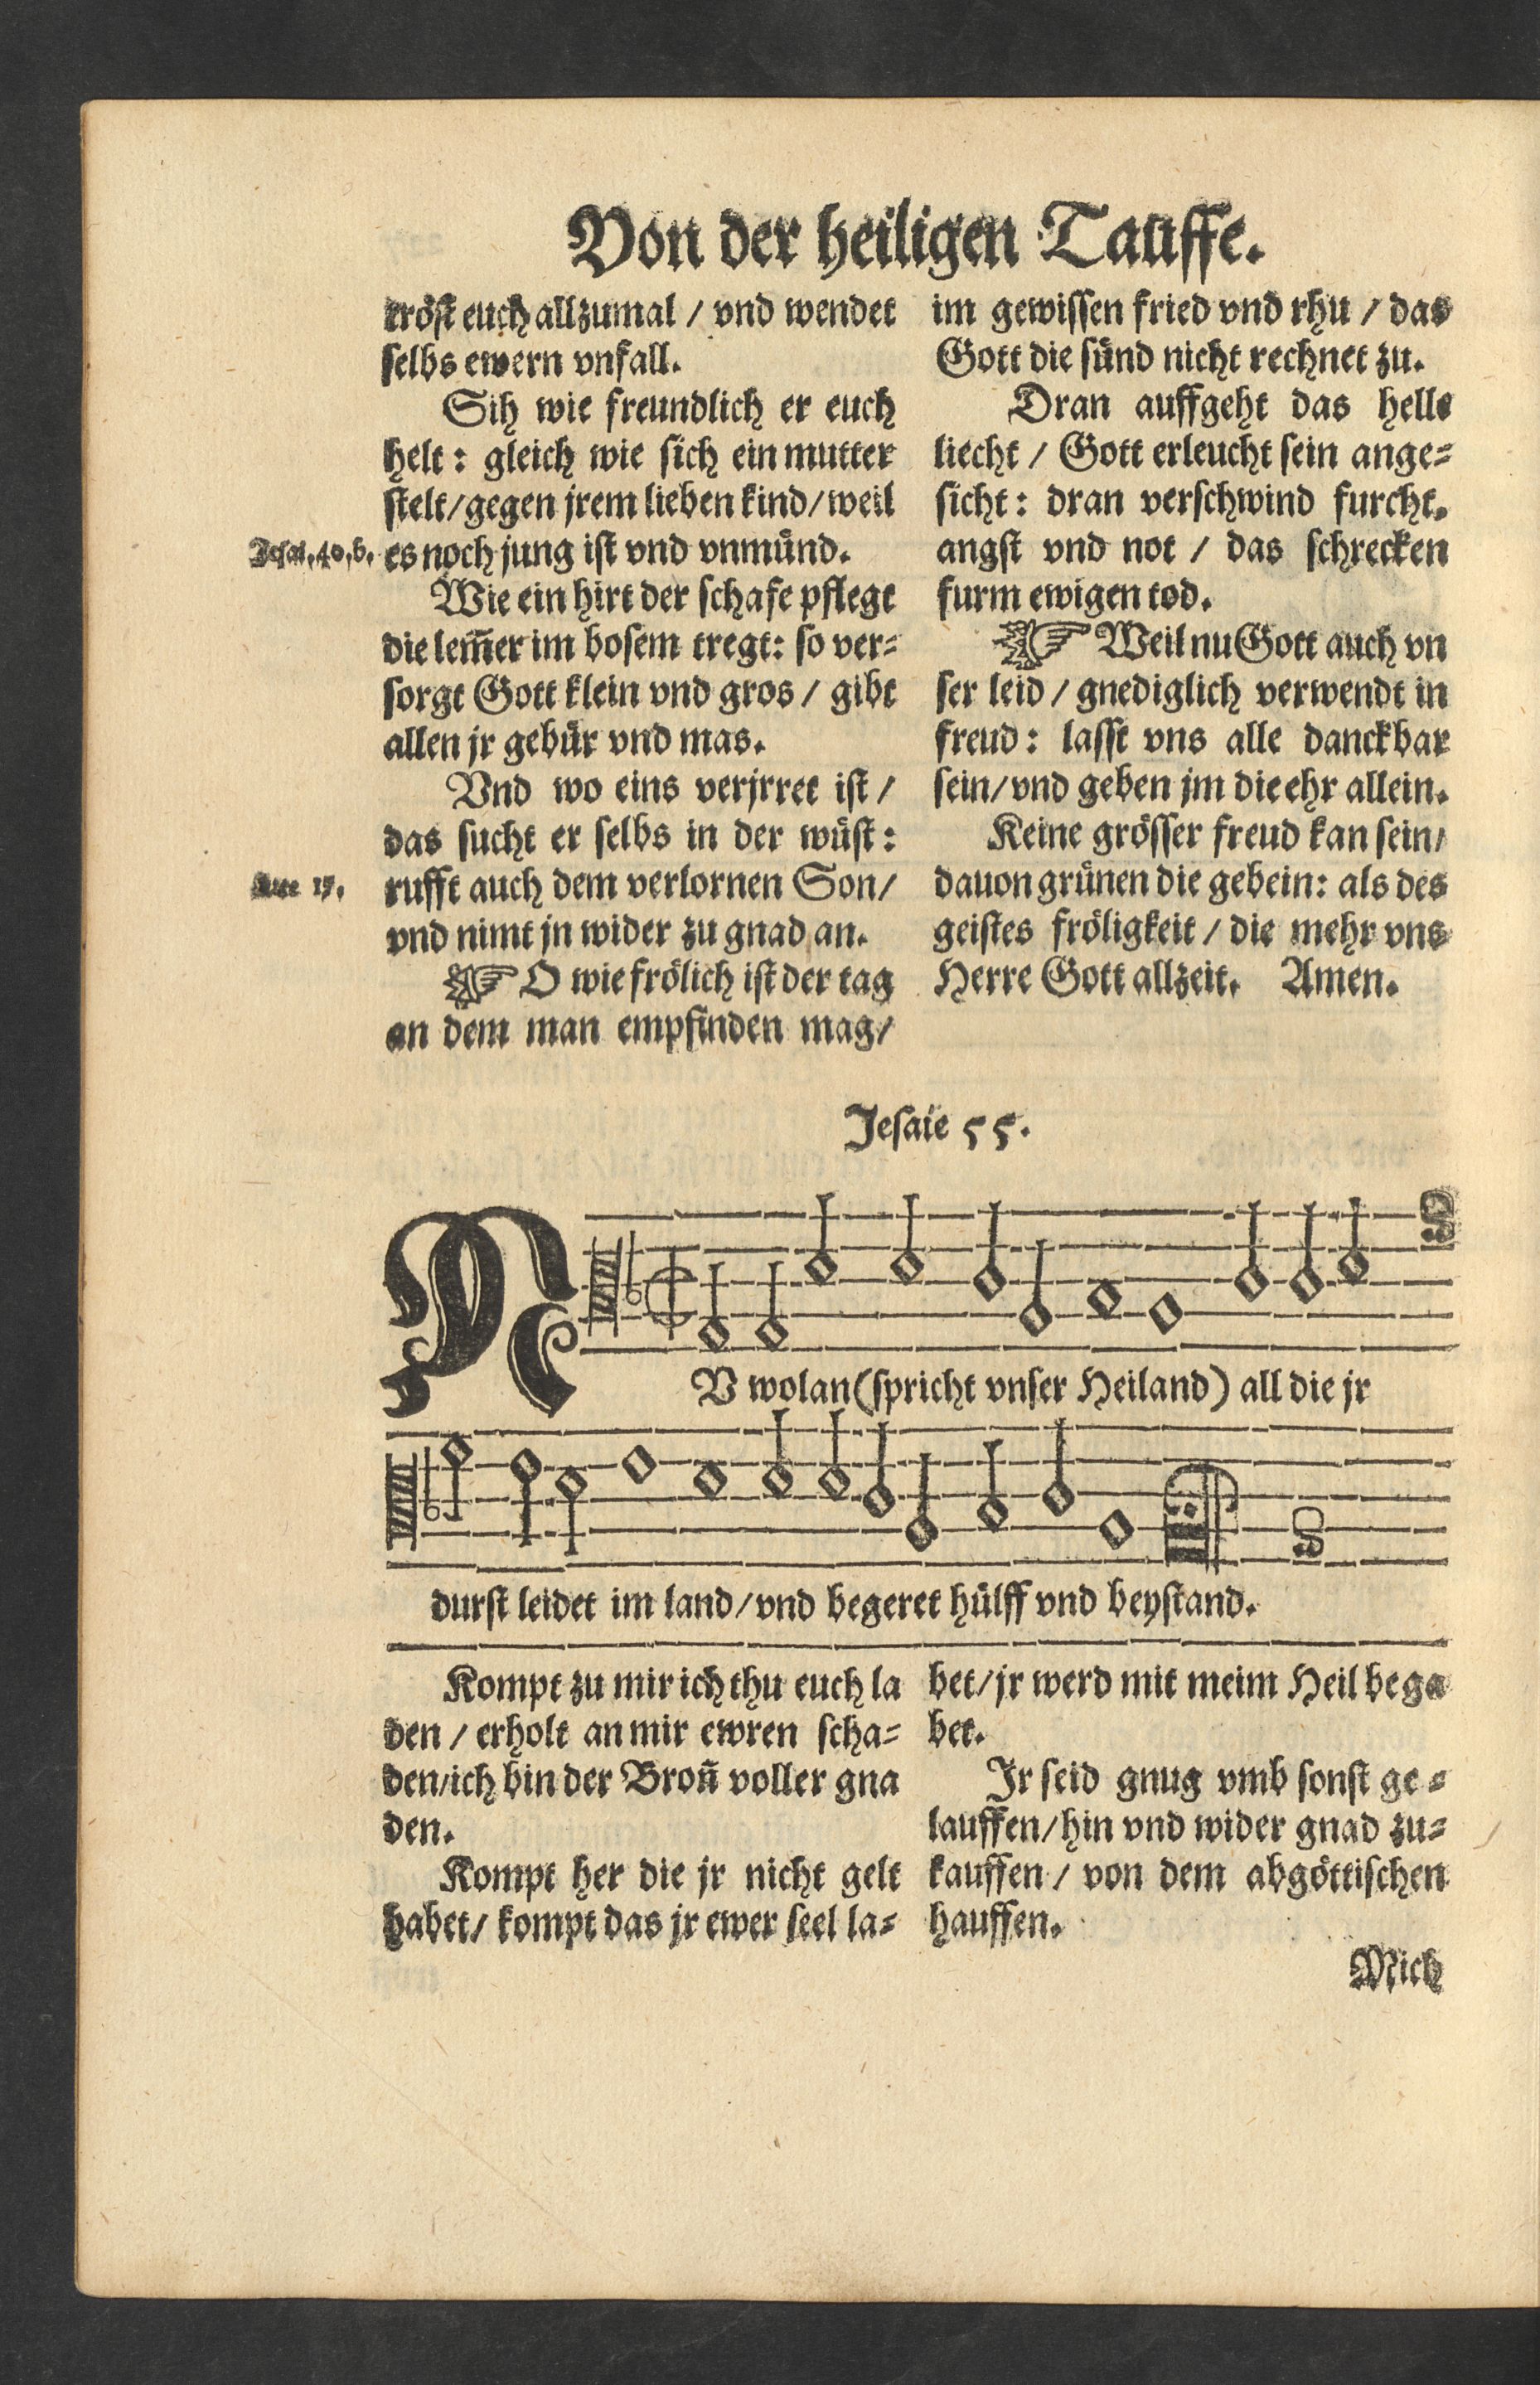 Von der heiligen Tauffe.
tröst euch allzumal / vnd wendet
selbs ewern vnfall.
Sih wie freundlich er euch
helt: gleich wie sich ein mutter
stelt/gegen jrem lieben kind/weil
Jesai.40,b.
es noch jung ist vnd vnmünd.
Wie ein hirt der schafe pflegt
die lem̃er im bosem tregt: so ver⸗
sorgt Gott klein vnd gros / gibt
allen jr gebür vnd mas.
Vnd wo eins verjrret ist /
das sucht er selbs in der wüst:
Luc 15.
rufft auch dem verlornen Son/
vnd nimt jn wider zu gnad an.
O wie frölich ist der tag
an dem man empfinden mag/
im gewissen fried vnd rhu / das
Gott die sünd nicht rechnet zu.
Dran auffgeht das helle
liecht / Gott erleucht sein ange⸗
sicht: dran verschwind furcht.
angst vnd not / das schrecken
furm ewigen tod.
Weil nu Gott auch vn
ser leid / gnediglich verwendt in
freud: lasst vns alle danckbar
sein/vnd geben jm die ehr allein.
Keine grösser freud kan sein/
dauon grünen die gebein: als des
geistes fröligkeit / die mehr vns
Herre Gott allzeit. Amen.
Jesaie 55.
NV wolan (spricht vnser Heiland) all die jr
durst leidet im land/vnd begeret hülff vnd beystand.
Kompt zu mir ich thu euch la
den / erholt an mir ewren scha⸗
den/ich bin der Bron̄ voller gna
den.
Kompt her die jr nicht gelt
habet/ kompt das jr ewer seel la⸗
bet/jr werd mit meim Heil bega
bet.
Jr seid gnug vmb sonst ge⸗
lauffen/hin vnd wider gnad zu⸗
kauffen / von dem abgöttischen
hauffen.
Mich